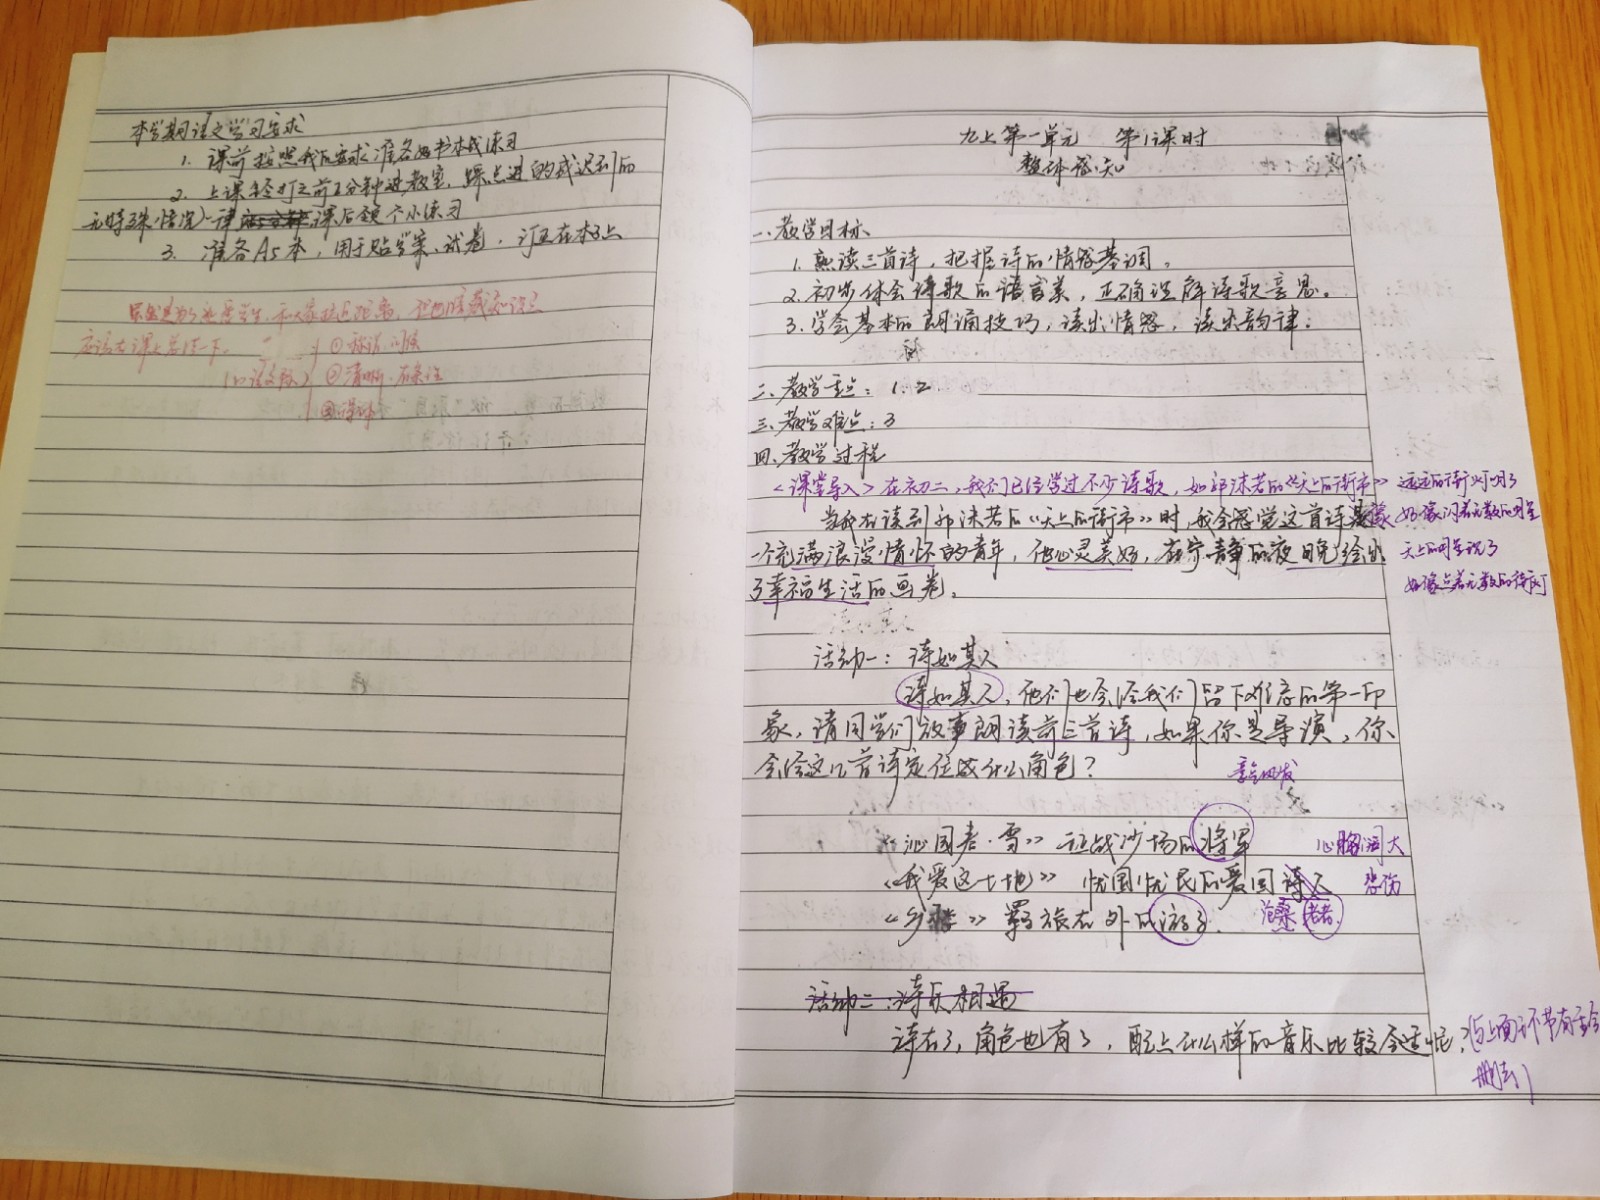 本学期语文学习要求
1. 课前按照我的要求准备好书本或练习
2. 上课铃打之前2分钟进教室，踩点进的或迟到的
无特殊情况一律课后使个小练习
3. 准备A5本，用于贴学案、试卷，订正在本子上
应该在课上总结一下。
① 称谓 问候
② 清晰、有条理
③ 得体
九上第一单元 第1课时
整体感知
一、教学目标
1. 熟读三首诗，把握诗的情感基调。
2. 初步体会诗歌的语言美，正确理解诗歌意思。
3. 学会基本的朗诵技巧，读出情感，读出韵律。
二、教学重点：1.2
三、教学难点：3
四、教学过程
<课堂导入> 在初二，我们已经学过不少诗歌，如郭沫若的《天上的街市》 远远的街灯明了
当我在读到郭沫若的《天上的街市》时，我会感觉这首诗像 好像闪着无数的明星
一个充满浪漫情怀的青年，他心灵美好，在宁静的夜晚绘出 天上的明星现了
了幸福生活的画卷。 好像点着无数的街灯
活动一：诗如其人
诗如其人，他们也会给我们留下难忘的第一印
象，请同学们放声朗读前三首诗，如果你是导演，你
会给这几首诗定位成什么角色？
意气风发
《沁园春·雪》 征战沙场的将军 心胸阔大
《我爱这土地》 忧国忧民的爱国诗人 悲伤
《乡愁》 羁旅在外的游子. 沧桑老者.
活动二：诗乐相遇
诗有了，角色也有了，配上什么样的音乐比较合适呢？(与上面环节有重合
删去)